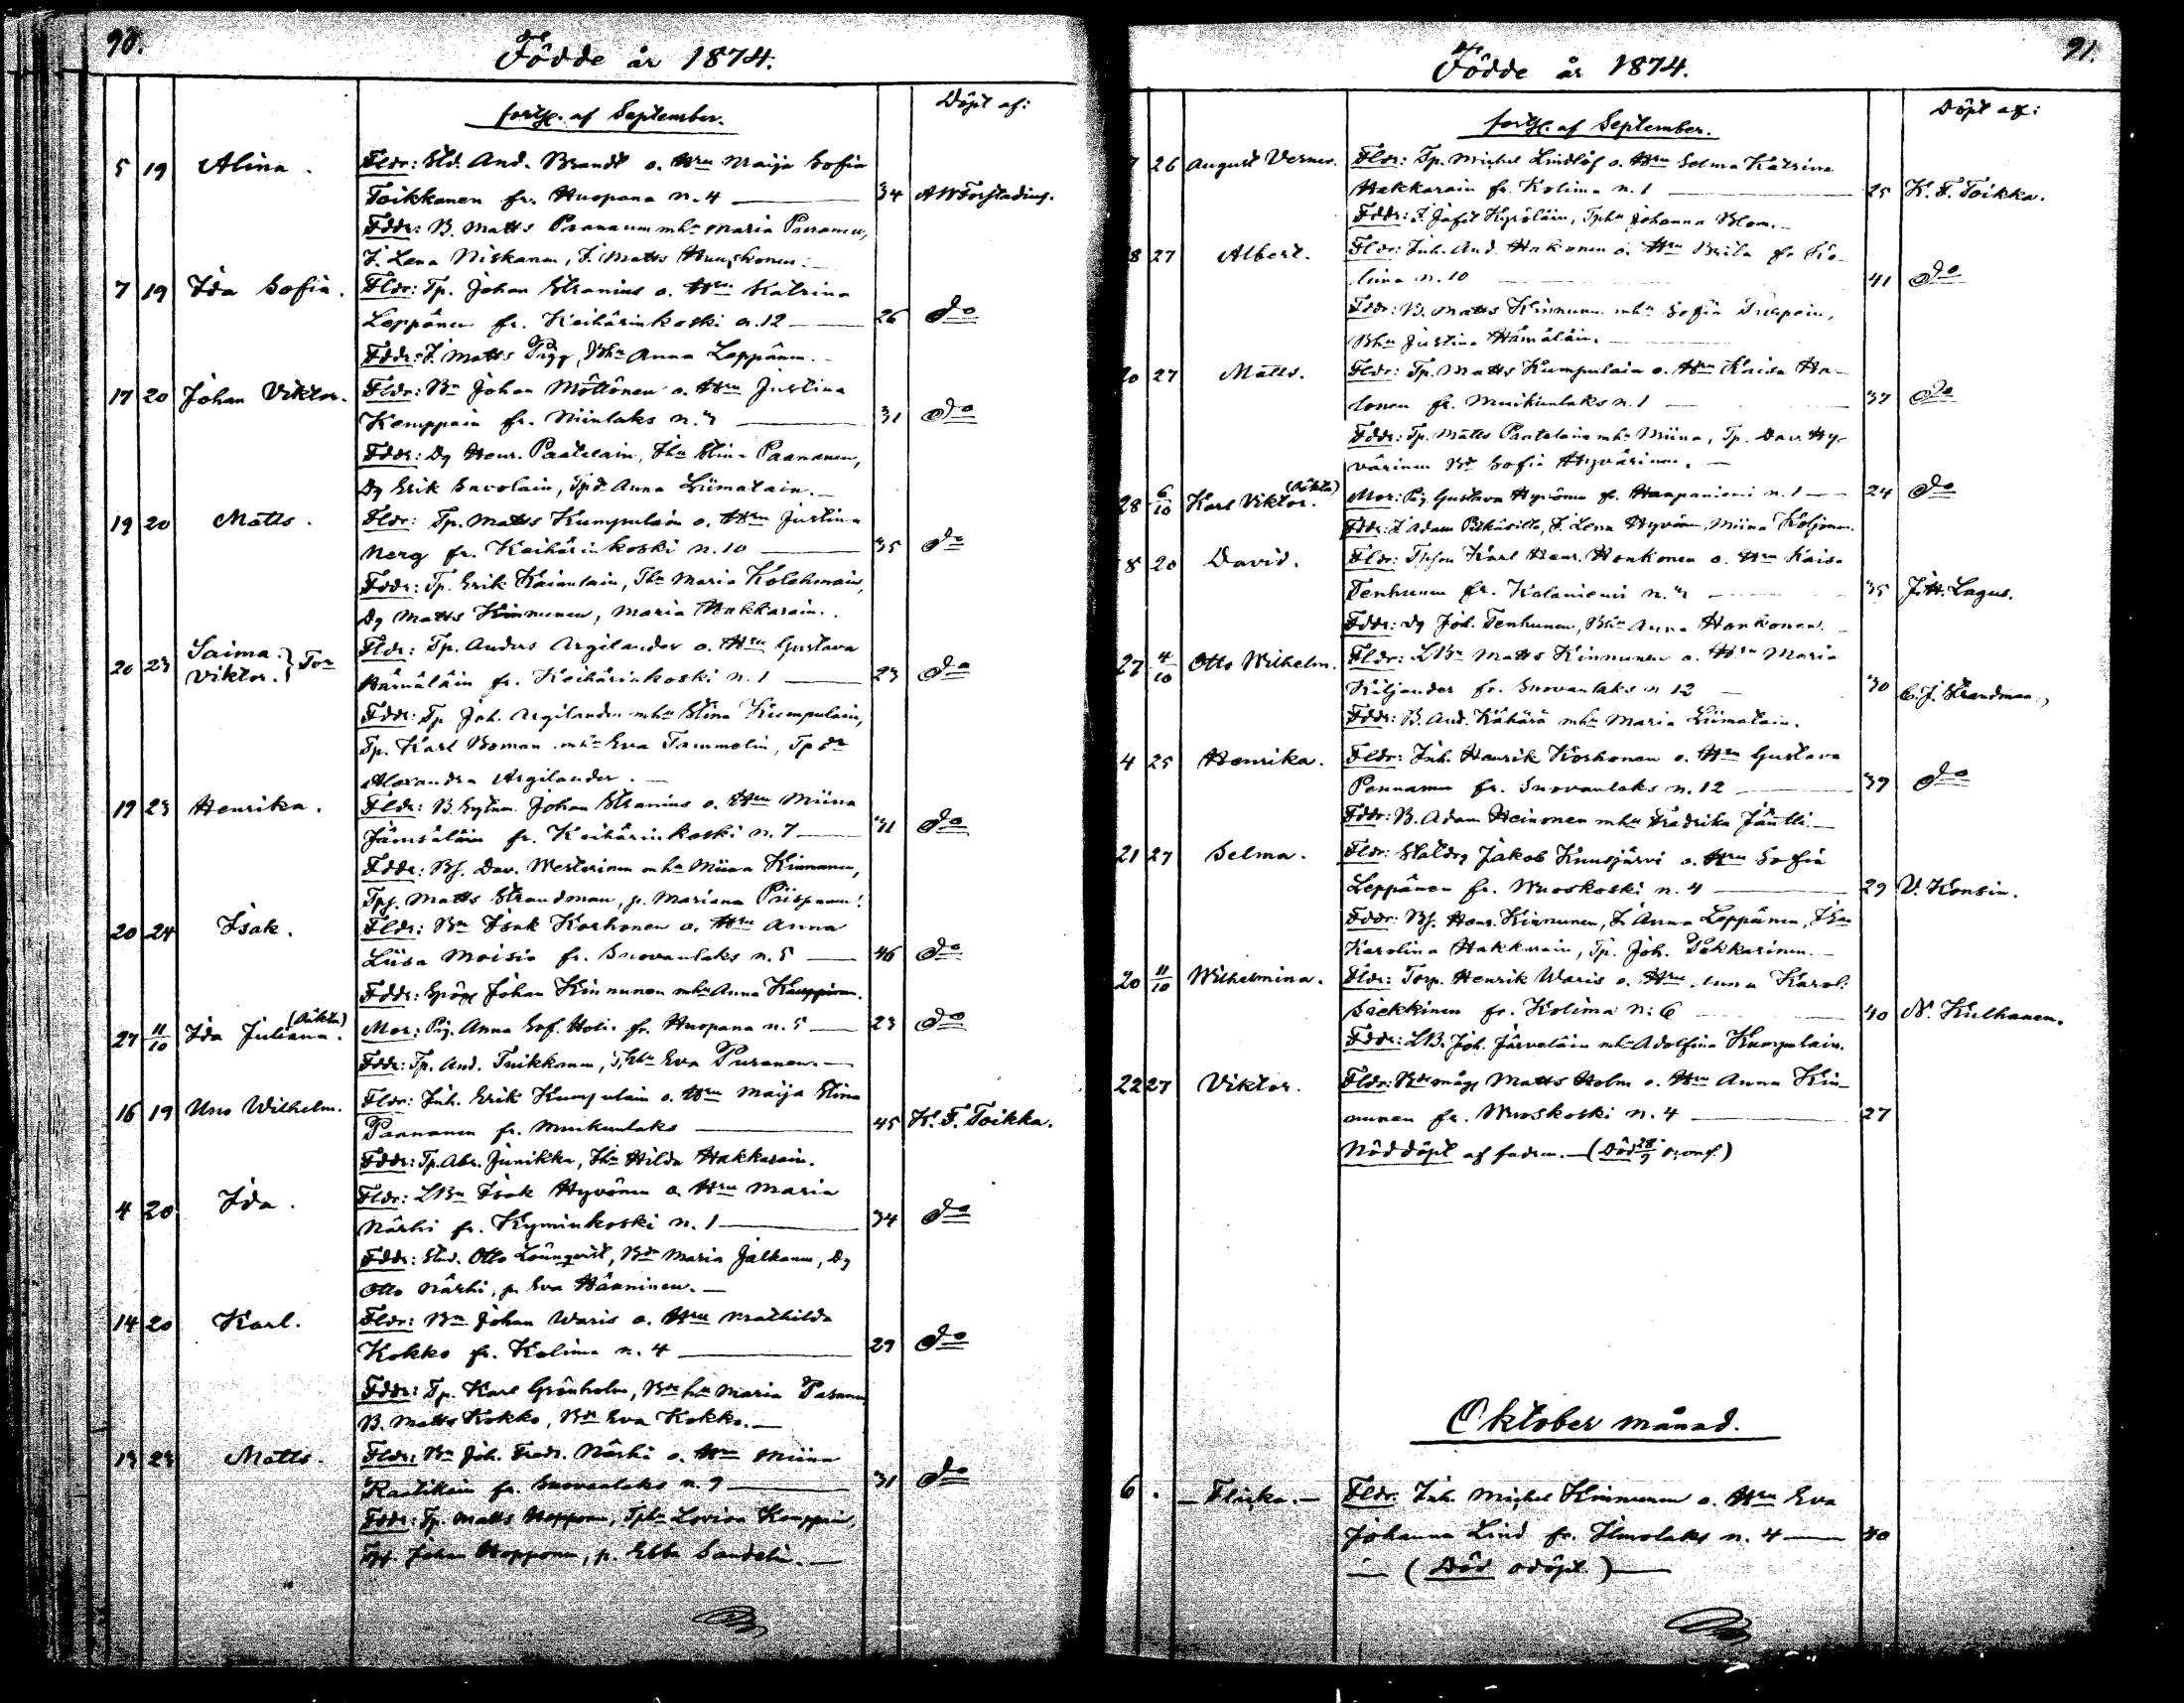 90.
Födde år 1874.
forts. af September. Döpt af:
5 19 Alina. Fldr: Std. And. Brandt o. Hru Maija Sofia
Toikkanen fr. Huopana n. 4 — 34 AWForstadius.
Fddr: B. Matts Paananen mhu Maria Paananen,
I. Lena Niskanen, I. Matts
7 19 Ida Sofia. Fldr: Tp. Johan Stranius o. Hru Katrina
Leppänen fr. Keihärinkoski n. 12 — 26 do
Fddr: I. Matts Pigg, Bhu Anna Leppänen.
17 20 Johan Viktor. Fldr: Bn Johan Möttönen o. Hru Justina
Kemppain fr. Niinilaks n. 2 — 31 do
Fddr: Dg Henr. Paatelain, Ihu Stina Paananen,
Dg Erik Savolain, Tpd. Anna Liimatain.
19 20 Matts. Fldr: Tp. Matts Kumpulain o. Hru Justina
Nerg fr. Keihärinkoski n. 10 — 35 do
Fddr: Tp. Erik Kainulain, Ihu Maria Kolehmain,
Dg Matts Kinnunen, Maria Hakkarain.
20 23 Saima. Viktor. } Tvr Fldr: Tp. Anders Argilander o. Hru Gustava
Hämäläin fr. Keihärinkoski n. 1 — 23 do
Fddr: Tp. Joh. Argilander mhu Stina Kumpulain,
Tp. Karl Boman mhu Eva Tammelin, Tp dr
Alexandra Argilander. —
19 23 Henrika. Fldr: B. Sytn. Johan Stranius o. Hru Miina
Jämsäläin fr. Keihärinkoski n. 7 — 31 do
Fddr: Bs. Dav. Westerinen mhu Miina Kinnunen,
Tps. Matts Strandman, p. Mariana Piispanen.
20 24 Isak. Fldr: Bn Isak Korhonen o. Hru Anna
Liisa Moisio fr. Suovanlaks n. 5 — 46 do
Fddr: Johan Kinnunen mhu Anna Kauppinen.
27 11/10 Ida Juliana. (Oäkta) Mor: Pig. Anna Sof. Holi fr. Huopana n. 5 — 23 do
Fddr: Tp. And. Tuikkanen, Ihu Eva Puranen. —
16 19 Uno Wilhelm. Fldr: Inh. Erik Kumpulain o. Hru Maija Stina
Paananen fr. Muikunlaks — 45 K. F. Toikka.
Fddr: Tp. Abr. Junikka, Ihu Hilda Hakkarain.
4 20 Ida. Fldr: LBn Isak Hyvönen o. Hru Maria
Närhi fr. Kyminkoski n. 1 — 34 do
Fddr: Stud. Otto Lönnqvist, Bdr Maria Jalkanen, Dg
Otto Närhi, p. Eva Hänninen. —
14 20 Karl. Fldr: Bn Johan Waris o. Hru Mathilda
Kokko fr. Kolima n. 4 — 29 do
Fddr: Tp. Karl Grönholm, Bn hu Maria Pasanen
B. Matts Kokko, Bdr Eva Kokko. —
13 23 Matts. Fldr: Bn Joh. Fredr. Närhi o. Hru Miina
Raatikain fr. Suovanlaks n. 9 — 31 do
Fddr: Tp. Matts Hopponen, Tphu Lovisa Kemppain,
Tps. Johan Hopponen, p. Ebba Sandelin. —
91.
Födde år 1874.
forts. af September. Döpt af:
7 26 August Verner. Fldr: Tp. Michel Lindlöf o. Hru Selma Katrina
Hakkarain fr. Kolima n. 1 — 25 K. F. Toikka.
Fddr: I. Jafet Kyröläin, Tphu Johanna Blom. —
8 27 Albert. Fldr: Inh. And. Hakonen o. Hru Brita fr. Ko-
lima n. 10 41 do
Fddr: B. Matts Kinnunen mhu Sofia
Bhu Justina Hämäläin. —
20 27 Matts. Fldr: Tp. Matts Kumpulain o. Hru Kaisa Ha-
lonen fr. Muikunlaks n. 1 — 37 do
Fddr: Tp. Matts Paatelain mhu Miina, Tp. Dav. Hy-
värinen Bdr Sofia Hyvärinen. —
28 6/10 Karl Viktor. (Oäkta) Mor: Pig Gustava Hyvönen fr. Haapaniemi n. 1 — 24 do
Fddr: I Adam Pitkäsilta, I. Lena Hyvönen, Miina Koljonen.
8 20 David. Fldr: Tpson Karl Henr. Honkonen o. Hru Kaisa
Tenhunen fr. Kalaniemi n. 2 — 35 J. H. Lagus.
Fddr: Dg Joh. Tenhunen, Bhu Anna Honkonen.
27 4/10 Otto Wilhelm. Fldr: LBn Matts Kinnunen o. Hru Maria
Kiljander fr. Suovanlaks n 12 — 30 C. J. Strandman.
Fddr: B. And. Kähärä mhu Maria Liimatain.
4 25 Henrika. Fldr: Inh. Henrik Korhonen o. Hru Gustava
Pannanen fr. Suovanlaks n. 12 — 37 do
Fddr: B. Adam Heinonen mhu Fredrika Jäntti. —
21 27 Selma. Fldr: Statdrg Jakob Kuusjärvi o. Hru Sofia
Leppänen fr. Wuoskoski n. 4 — 29 V. Konsin.
Fddr: Bs. Henr. Kinnunen, I. Anna Leppänen, Ihu
Karolina Hakkarain, Tp. Joh. Pekkarinen. —
20 11/10 Wilhelmina. Fldr: Torp. Henrik Waris o. Hru Anna Karol.
Siekkinen fr. Kolima n: 6 40 N. Kulhanen.
Fddr: LB. Joh. Järveläin mhu Adolfina Kumpulain.
22 27 Viktor. Fldr: Bdr måg Matts Holm o. Hru Anna Kin-
nunen fr. Wuoskoski n. 4 — 27
Nöddöpt af fadren. — (Död 28/9 )
Oktober månad.
6 . — Flicka. — Fldr. Inh. Michel Kinnunen o. Hru Eva
Johanna Lind fr. Ilmolaks n. 4 — 40
— (Död odöpt.) —